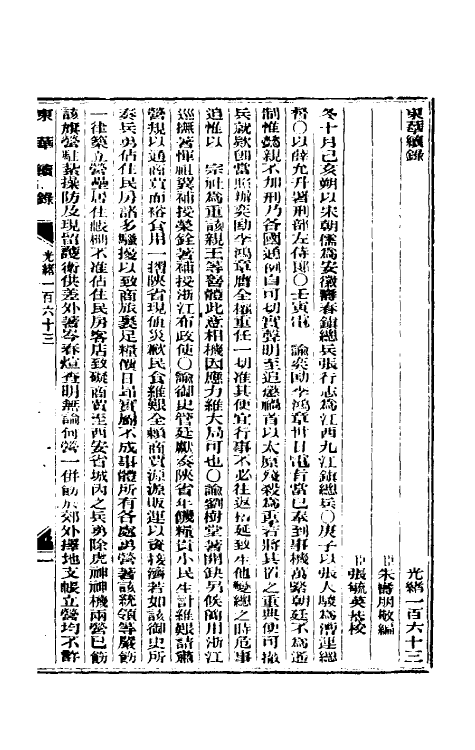 東華續錄　光緒一百六十三
臣朱壽朋敬編
臣張毓英恭校
冬十月己亥朔以朱朝儒爲安徽壽春鎮總兵張行志爲江西九江鎮總兵〇庚子以張人駿爲漕運總
督〇以薛允升署刑部左侍郎〇壬寅電　諭奕劻李鴻章卅日電旨當已奉到事機萬緊朝廷不爲遙
制惟懿親不加刑乃各國通例自可切實聲明至追懲禍首以太原殘殺爲重著將其首之重典便可撤
兵就款卽當照辦奕劻李鴻章膺全權重任一切准其便宜行事不必往返拓延致生他變總之時危事
迫惟以　宗社爲重該親王等當體此意相機因應力維大局可也〇諭劉樹堂著開缺另候簡用浙江
巡撫著惲祖翼補授榮銓著補授浙江布政使〇諭御史管廷獻奏陝省年饑糧貴小民生計維艱請肅
營規以通商賈而裕食用一摺陝省現値災歉民食維艱全賴商賈源源販運以資接濟若如該御史所
奏兵勇佔住民房諸多騷擾以致商旅裹足糧價日昂實屬不成事體所有各處勇營著該統領等嚴飭
一律築立營壘居住嚴禁不准佔住民房客店致礙商賈至西安省城內之兵勇除虎神神機兩營已飭
該旗營駐紮操防及現留護衛供差外著岑春煊查明無論何營一併飭於郊外擇地支帳立營均不許
東華續錄　光緒一百六十三　一